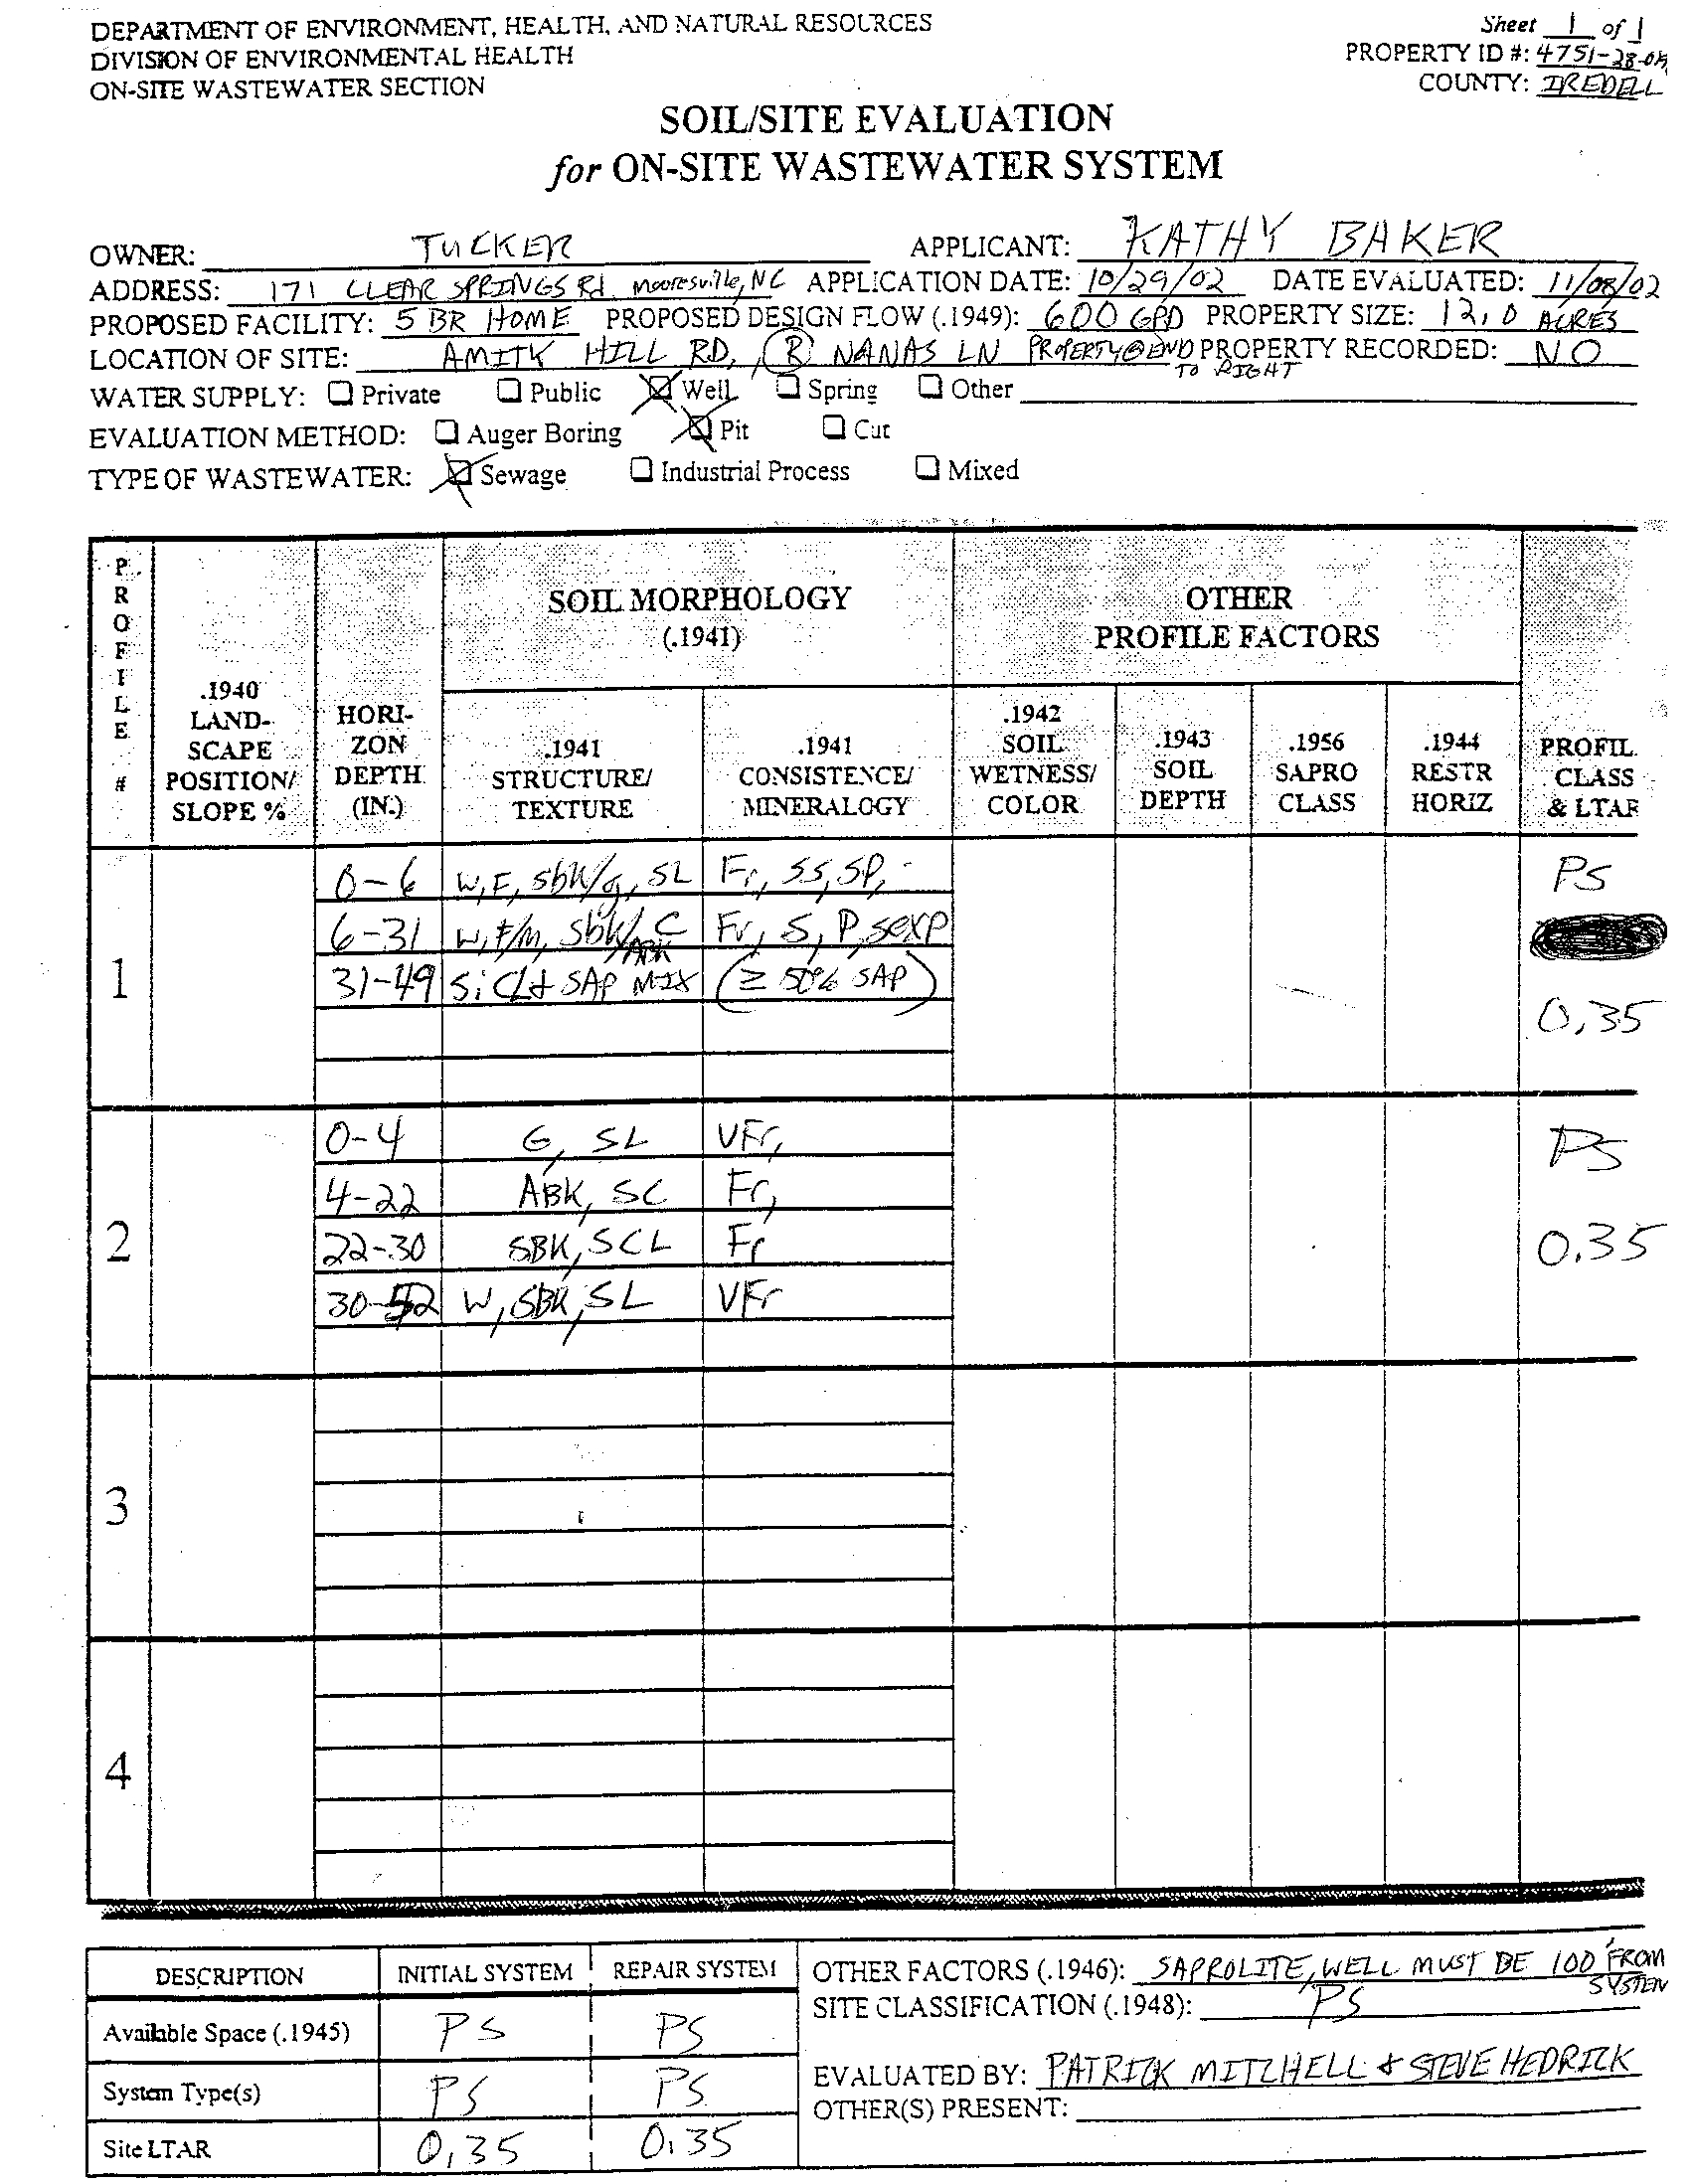 DEPARTMENT OF ENVIRONMENT, HEALTH, AND NATURAL RESOURCES
DIVISION OF ENVIRONMENTAL HEALTH
ON-SITE WASTEWATER SECTION
Sheet 1 of 1
PROPERTY ID #: 4751-28-
COUNTY: IREDELL
SOIL/SITE EVALUATION
for ON-SITE WASTEWATER SYSTEM
OWNER: TUCKER APPLICANT: KATHY BAKER
ADDRESS: 171 CLEAR SPRINGS Rd. Mooresville, NC APPLICATION DATE: 10/29/02 DATE EVALUATED: 11/08/02
PROPOSED FACILITY: 5 BR HOME PROPOSED DESIGN FLOW (.1949): 600 GPD PROPERTY SIZE: 12.0 ACRES
LOCATION OF SITE: AMITY HILL RD, (R) NANAS LN PROPERTY @ END TO RIGHT PROPERTY RECORDED: NO
WATER SUPPLY: Private Public Well Spring Other
EVALUATION METHOD: Auger Boring Pit Cut
TYPE OF WASTEWATER: Sewage Industrial Process Mixed
PROFILE #
.1940 LAND-SCAPE POSITION/ SLOPE %
HORI-ZON DEPTH (IN.)
SOIL MORPHOLOGY
(.1941)
.1941 STRUCTURE/ TEXTURE
.1941 CONSISTENCE/ MINERALOGY
OTHER
PROFILE FACTORS
.1942 SOIL WETNESS/ COLOR
.1943 SOIL DEPTH
.1956 SAPRO CLASS
.1944 RESTR HORIZ
PROFIL CLASS & LTAR
1
0-6 W,F, sbk/g, SL Fr, SS, SP, -
6-31 W, F/M, sbk/ABK C Fr, S, P, sexp
31-49 SiCL+ SAP MIX (≥ 50% SAP)
PS
0.35
2
0-4 G, SL VFr,
4-22 ABK, SC Fr,
22-30 SBK, SCL Fr
30-52 W, SBK, SL VFr
PS
0.35
3
4
DESCRIPTION INITIAL SYSTEM REPAIR SYSTEM
Available Space (.1945) PS PS
System Type(s) PS PS
Site LTAR 0.35 0.35
OTHER FACTORS (.1946): SAPROLITE, WELL MUST BE 100' FROM SYSTEM
SITE CLASSIFICATION (.1948): PS
EVALUATED BY: PATRICK MITCHELL & STEVE HEDRICK
OTHER(S) PRESENT: